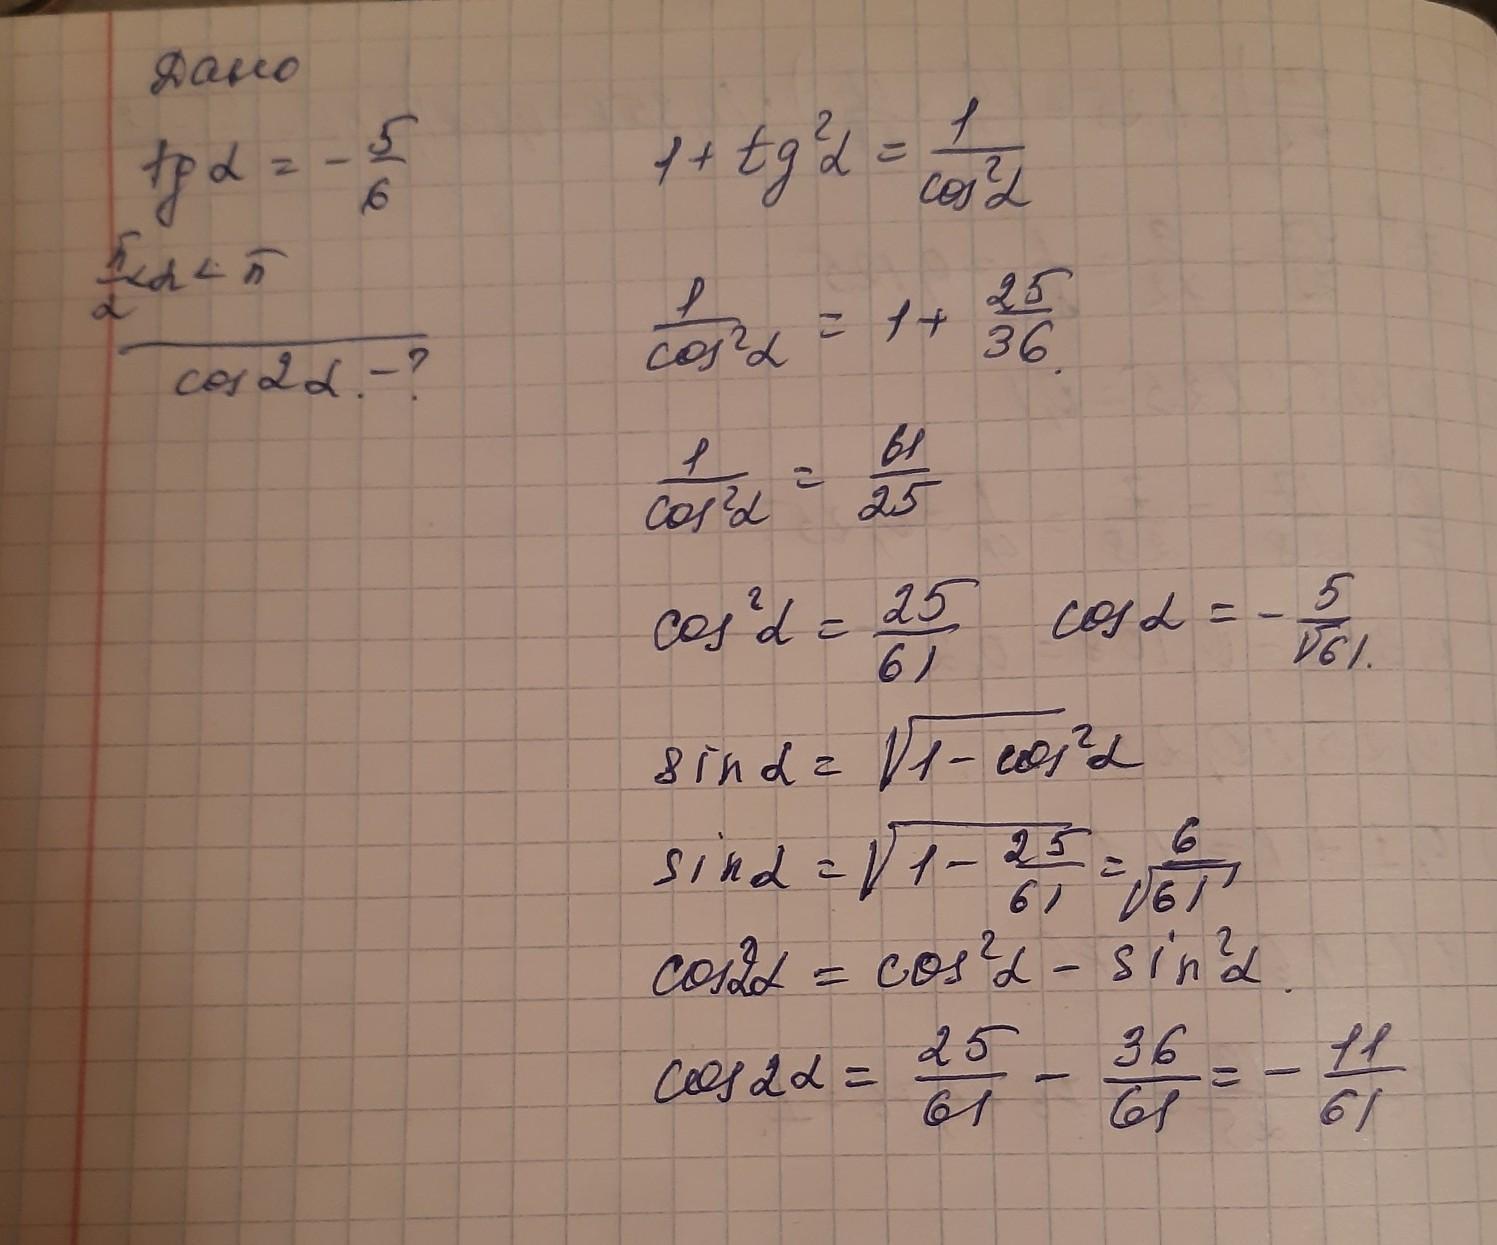 Дано
tg α = - 5/6
π/2 < α < π
cos 2α. - ?
1 + tg²α = 1/cos²α
1/cos²α = 1 + 25/36.
1/cos²α = 61/25
cos²α = 25/61 cos α = - 5/√61.
sin α = √(1 - cos²α)
sin α = √(1 - 25/61) = 6/√61
cos2α = cos²α - sin²α.
cos 2α = 25/61 - 36/61 = - 11/61